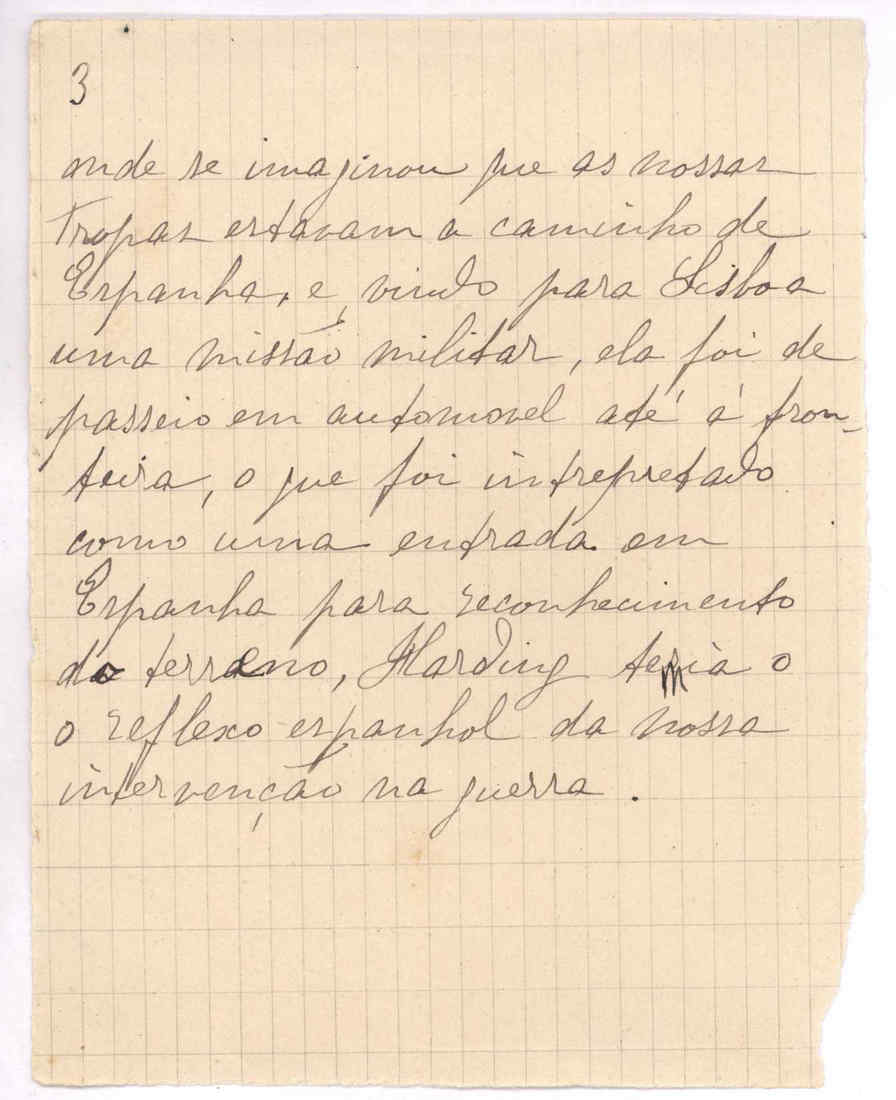 3
onde se imaginou que as nossas
tropas estavam a caminho de
Espanha, e, vindo para Lisboa
uma missão militar, ela foi de
passeio em automovel até á fron-
teira, o que foi intrepretado
como uma entrada em
Espanha para reconhecimento
do terreno, Harding temia o
o reflexo espanhol da nossa
intervenção na guerra.